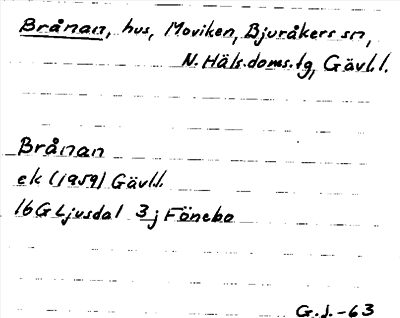 Brånan, hus, Moviken, Bjuråkers sn,
N. Häls. doms. tg, Gävl. l.
Brånan
ek (1959) Gävl.l.
16G Ljusdal 3j Fönebo
G.J.-63